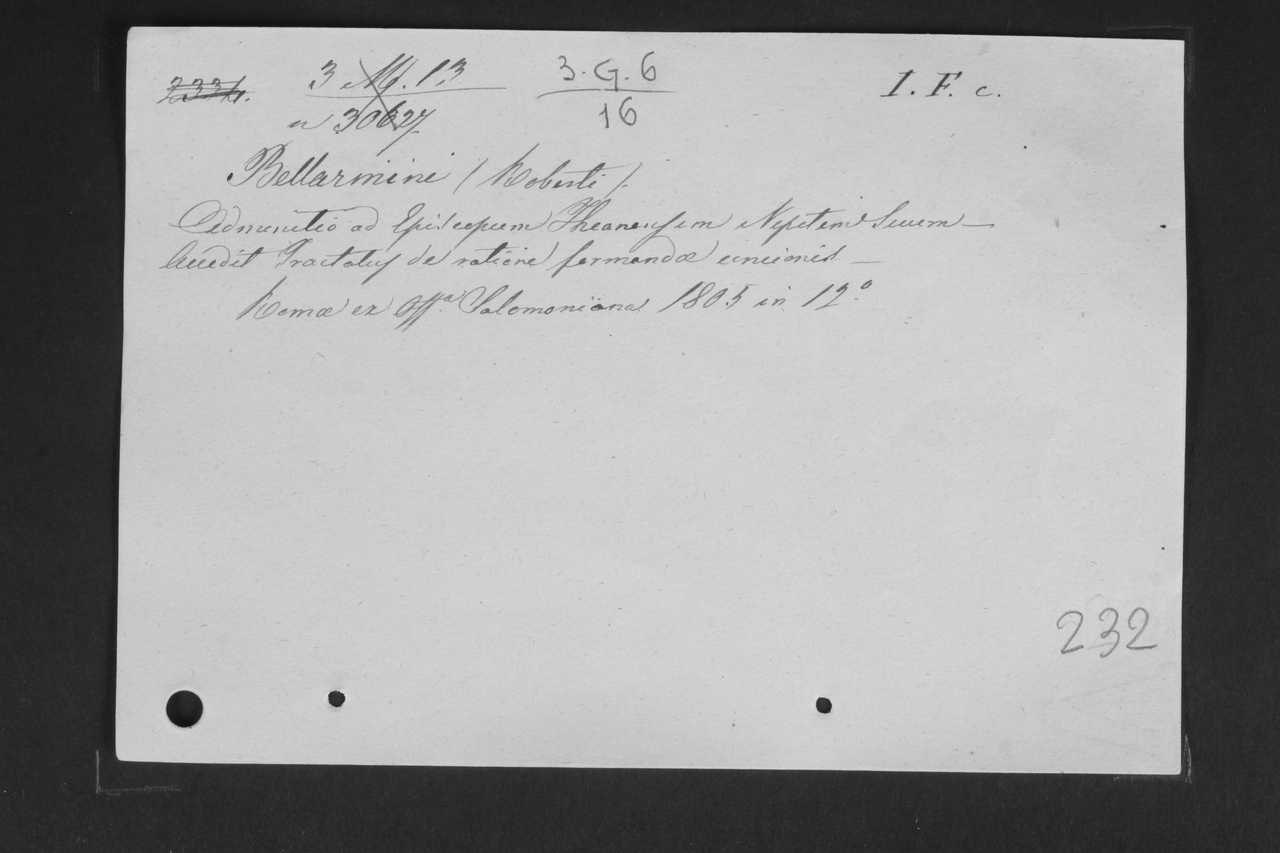 3 M. 13 3. G. 6 I. F. c.
n 30627. 16
Bellarmini (Roberti).
Admonitio ad Episcopum Theanensem Nepotem Suum —
Accedit Tractatus de ratione formandæ concionis —
Romæ ex offª. Salomoniana 1805 in 12º
232